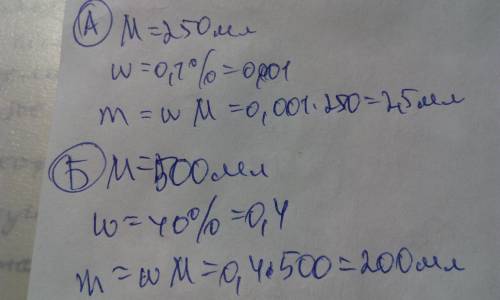 А М=250мл
w=0,1%=0,001
m=wM=0,001·250=2,5мл
Б М=500мл
w=40%=0,4
m=wM=0,4·500=200мл